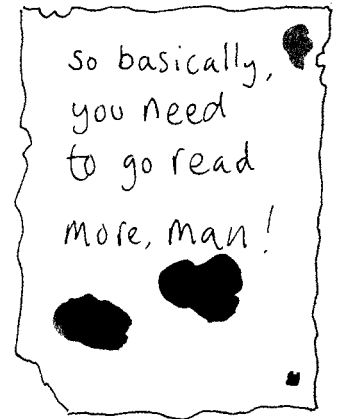 so basically,
you need
to go read
more, man!